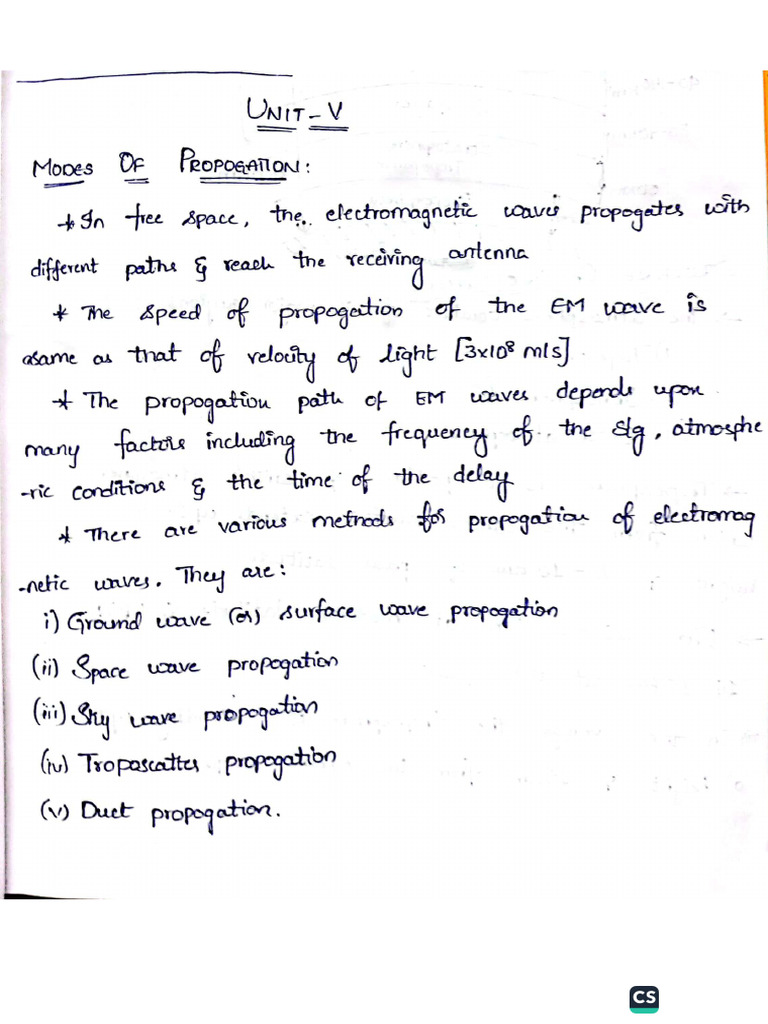 UNIT-V
MODES OF PROPOGATION:
* In free space, the electromagnetic waves propogates with
different paths & reach the receiving antenna
* The speed of propogation of the EM wave is
same as that of velocity of light [3x10⁸ m/s]
* The propogation path of EM waves depends upon
many factors including the frequency of the S/g, atmosphe
-ric conditions & the time of the delay
* There are various methods for propogation of electromag
-netic waves. They are:
i) Ground wave (or) surface wave propogation
(ii) Space wave propogation
(iii) Sky wave propogation
(iv) Troposcatter propogation
(v) Duct propogation.
CS